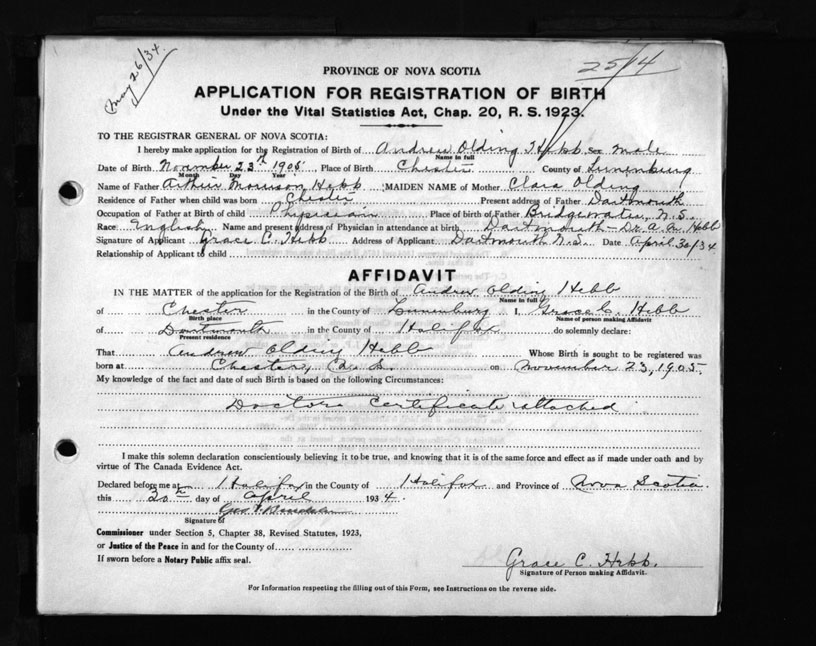 May 26/34.
2514
PROVINCE OF NOVA SCOTIA
APPLICATION FOR REGISTRATION OF BIRTH
Under the Vital Statistics Act, Chap. 20, R. S. 1923.
TO THE REGISTRAR GENERAL OF NOVA SCOTIA:
I hereby make application for the Registration of Birth of Andrew Olding Hebb Sex male
Name in full
Date of Birth November 23rd 1905 Place of Birth Chester County of Lunenburg
Month Day Year
Name of Father Arthur Morrison Hebb MAIDEN NAME of Mother Clara Olding
Residence of Father when child was born Chester Present address of Father Dartmouth
Occupation of Father at Birth of child Physician Place of birth of Father Bridgewater, N.S.
Race English Name and present address of Physician in attendance at birth Dartmouth - Dr. A. M. Hebb
Signature of Applicant Grace C. Hebb Address of Applicant Dartmouth N.S. Date April 30/34
Relationship of Applicant to child
AFFIDAVIT
IN THE MATTER of the application for the Registration of the Birth of Andrew Olding Hebb
Name in full
of Chester in the County of Lunenburg I, Grace C. Hebb
Birth place Name of person making Affidavit
of Dartmouth in the County of Halifax do solemnly declare:
Present residence
That Andrew Olding Hebb Whose Birth is sought to be registered was
born at Chester, N.S. on November 23, 1905.
My knowledge of the fact and date of such Birth is based on the following Circumstances:
Doctors Certificate attached
I make this solemn declaration conscientiously believing it to be true, and knowing that it is of the same force and effect as if made under oath and by
virtue of The Canada Evidence Act.
Declared before me at Halifax in the County of Halifax and Province of Nova Scotia.
this 30th day of April 1934.
Signature of
Commissioner under Section 5, Chapter 38, Revised Statutes, 1923,
or Justice of the Peace in and for the County of
If sworn before a Notary Public affix seal.
Grace C. Hebb
Signature of Person making Affidavit.
For Information respecting the filling out of this Form, see Instructions on the reverse side.